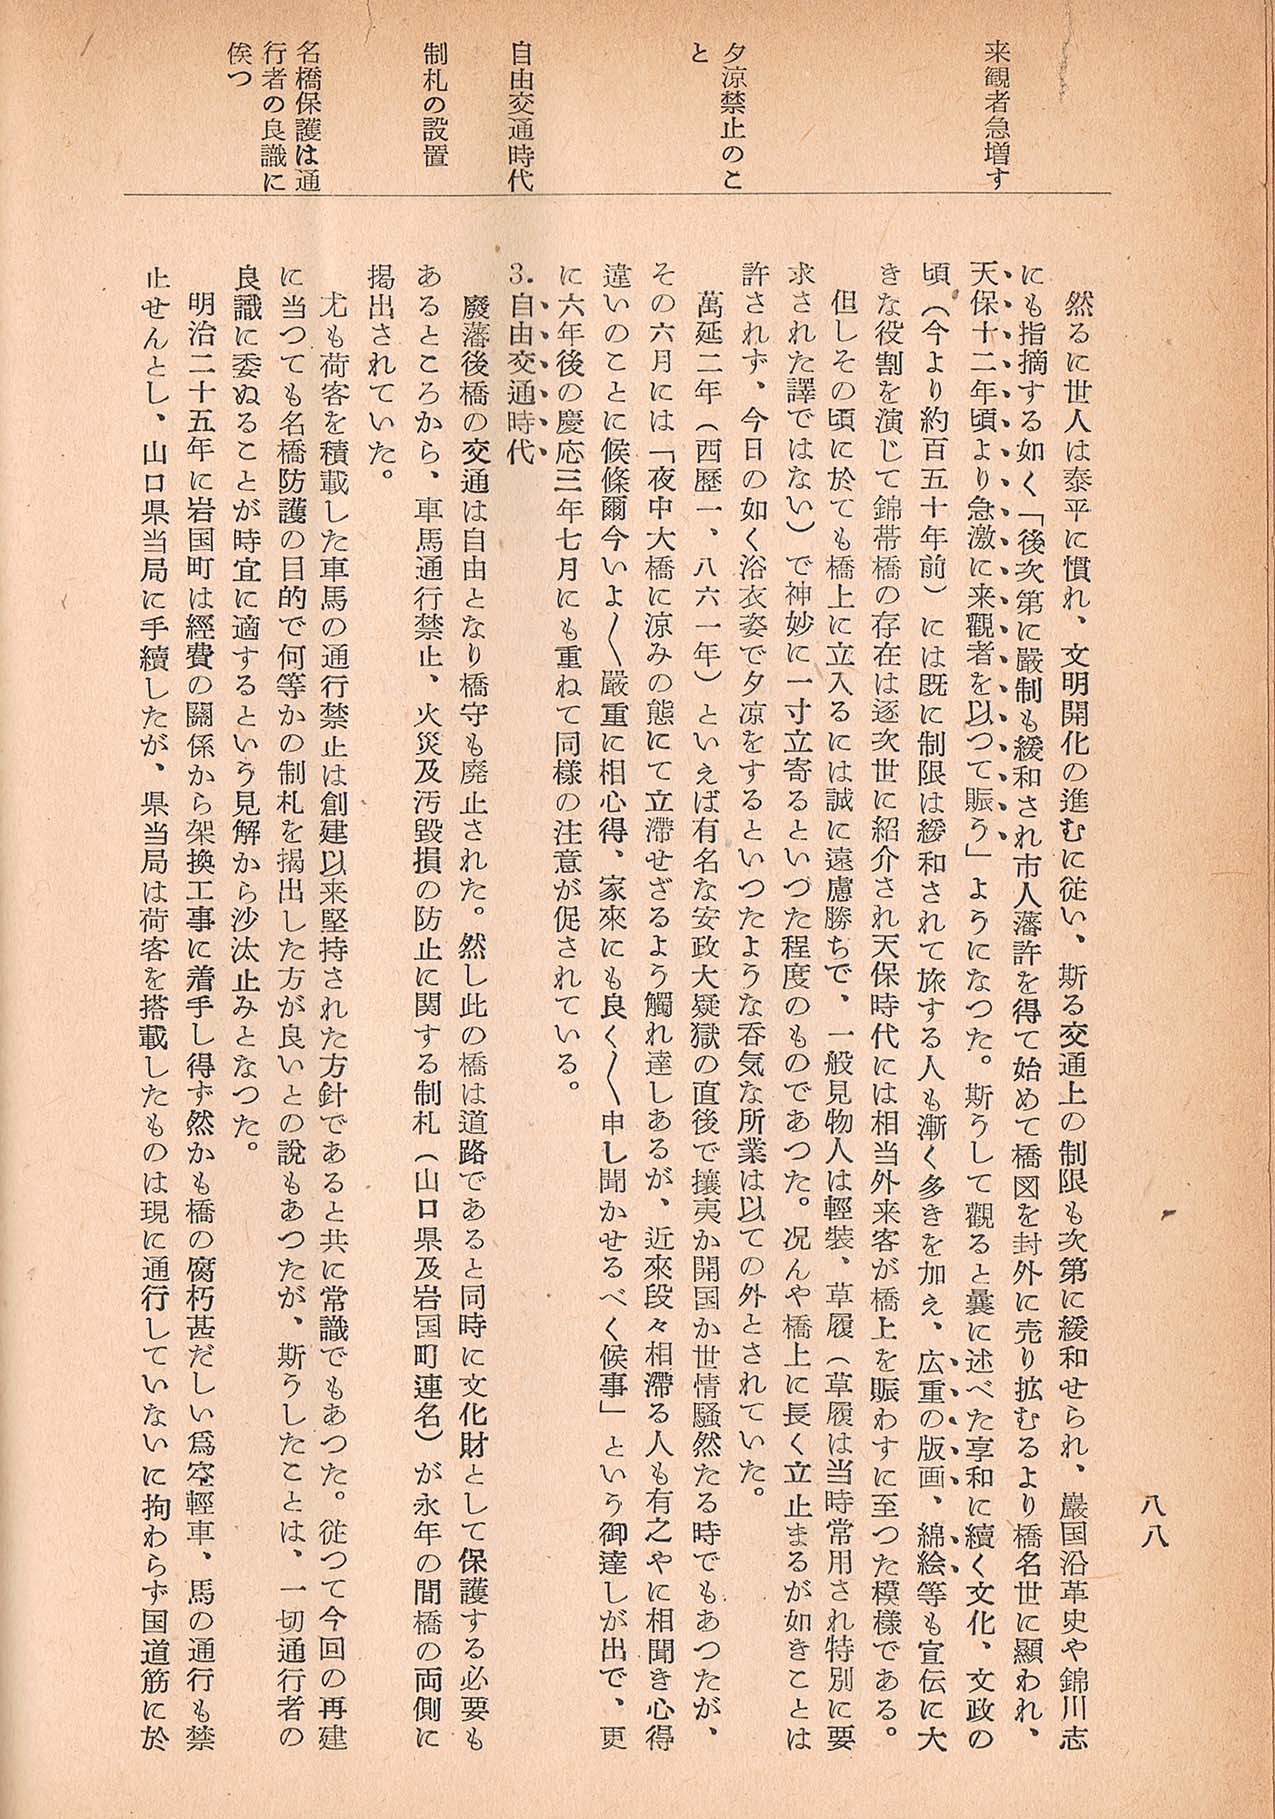 八八
来観者急増す
夕涼禁止のこ
と
自由交通時代
制札の設置
名橋保護は通
行者の良識に
俟つ
然るに世人は泰平に慣れ、文明開化の進むに従い、斯る交通上の制限も次第に緩和せられ、巖国沿革史や錦川志
にも指摘する如く「後次第に嚴制も緩和され市人藩許を得て始めて橋図を封外に売り拡むるより橋名世に顯われ、
天保十二年頃より急激に来觀者を以つて賑う」ようになつた。斯うして觀ると曩に述べた享和に續く文化、文政の
頃（今より約百五十年前）には既に制限は緩和されて旅する人も漸く多きを加え、広重の版画、綿絵等も宣伝に大
きな役割を演じて錦帯橋の存在は逐次世に紹介され天保時代には相当外来客が橋上を賑わすに至つた模様である。
但しその頃に於ても橋上に立入るには誠に遠慮勝ちで、一般見物人は輕裝、草履（草履は当時常用され特別に要
求された譯ではない）で神妙に一寸立寄るといつた程度のものであつた。况んや橋上に長く立止まるが如きことは
許されず、今日の如く浴衣姿で夕凉をするといつたような呑気な所業は以ての外とされていた。
萬延二年（西歷一、八六一年）といえば有名な安政大疑獄の直後で攘夷か開国か世情騷然たる時でもあつたが、
その六月には「夜中大橋に涼みの態にて立滯せざるよう觸れ達しあるが、近來段々相滯る人も有之やに相聞き心得
違いのことに候條爾今いよ〱嚴重に相心得、家來にも良く〱申し聞かせるべく候事」という御達しが出で、更
に六年後の慶応三年七月にも重ねて同様の注意が促されている。
3.自由交通時代
廢藩後橋の交通は自由となり橋守も廃止された。然し此の橋は道路であると同時に文化財として保護する必要も
あるところから、車馬通行禁止、火災及汚毀損の防止に関する制札（山口県及岩国町連名）が永年の間橋の両側に
掲出されていた。
尤も荷客を積載した車馬の通行禁止は創建以来堅持された方針であると共に常識でもあつた。従つて今回の再建
に当つても名橋防護の目的で何等かの制札を掲出した方が良いとの說もあつたが、斯うしたことは、一切通行者の
良識に委ぬることが時宜に適するという見解から沙汰止みとなつた。
明治二十五年に岩国町は經費の關係から架換工事に着手し得ず然かも橋の腐朽甚だしい爲空輕車、馬の通行も禁
止せんとし、山口県当局に手續したが、県当局は荷客を搭載したものは現に通行していないに拘わらず国道筋に於